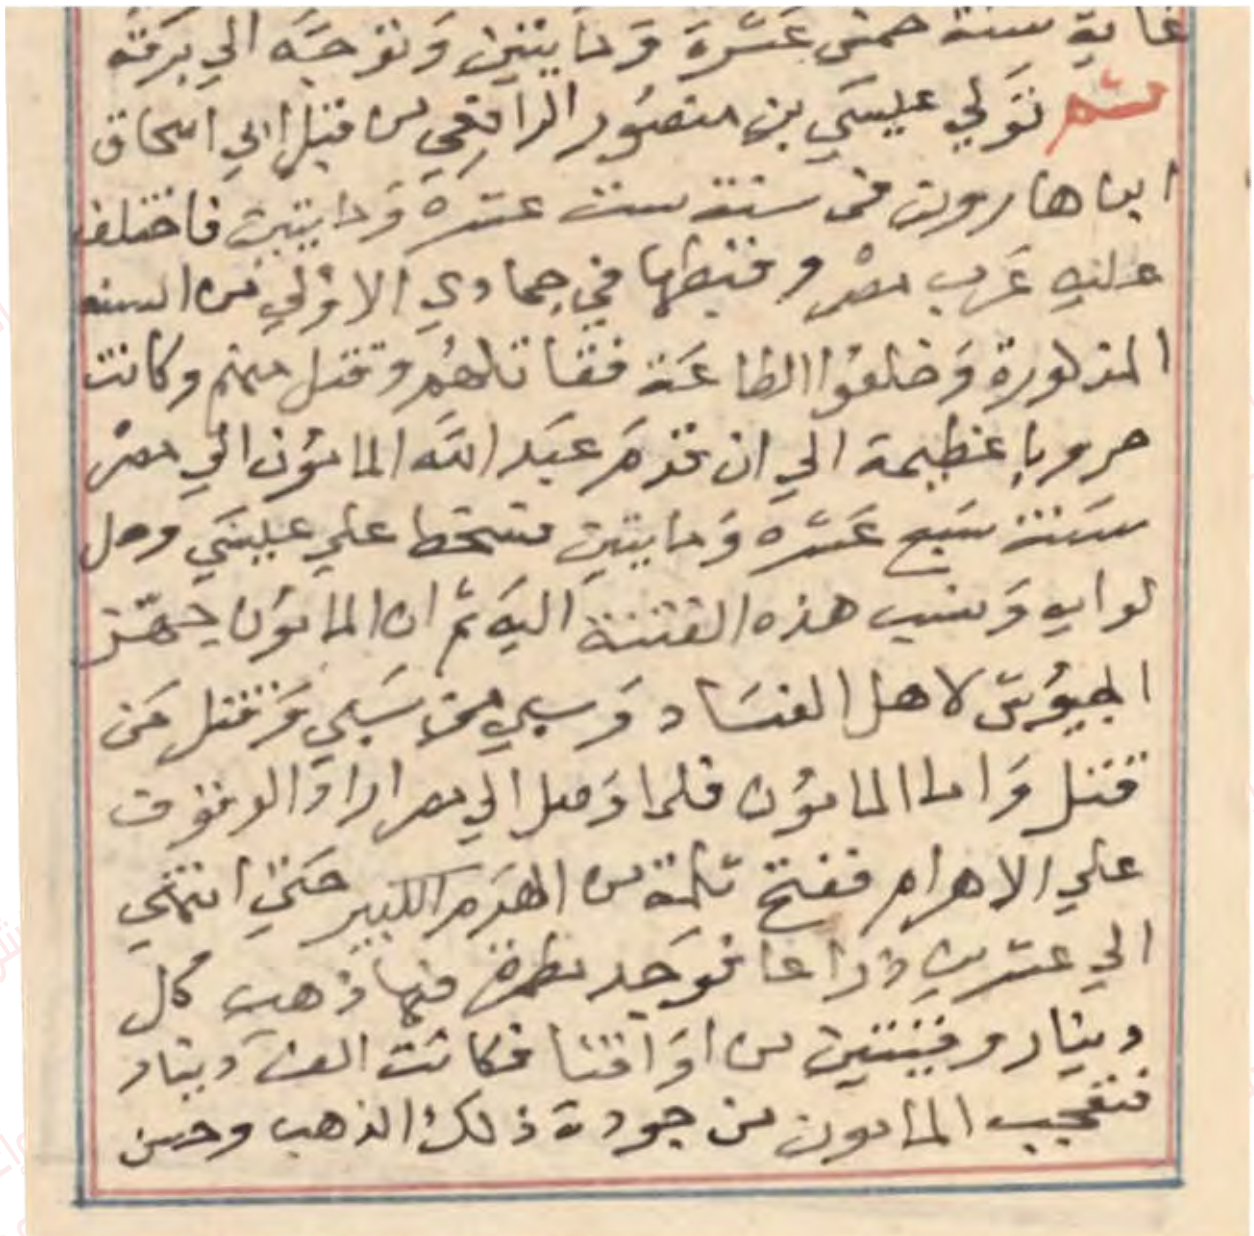 غاية سنة خمس عشرة ومايتين وتوجه الي برقة
ثم تولي عيسي بن منصور الرافعي من قبل ابي اسحاق
ابن هارون في سنة ست عشرة ومايتين فاختلف
عليه عرب مصر وقبطها في جمادي الاولي من السنه
المذكورة وخلعوا الطاعة فقاتلهم وقتل منهم وكانت
حروبا عظيمة الي ان قدم عبد الله المامون الي مصر
سنة سبع عشره ومايتين فسخط علي عيسي وحل
لوايه ونسب هذه الفتنة اليه ثم ان المامون جهز
الجيوش لاهل الفساد وسبي من سبي وقتل من
قتل واما المامون فلما وصل الي مصر اراد الوقوف
علي الاهرام ففتح ثلمة من الهرم الكبير حتي انتهي
الي عشرين ذراعا فوجد مطهرة فيها ذهب كل
دينار وقيتين من اواقنا فكانت الف دينار
فتعجب المامون من جودة ذلك الذهب وحسن